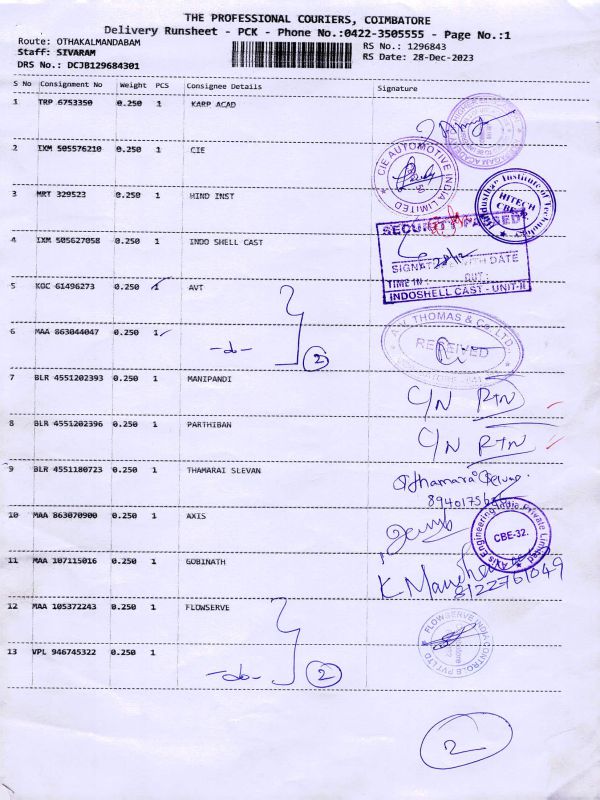 THE PROFESSIONAL COURIERS, COIMBATORE
Delivery Runsheet - PCK - Phone No.:0422-3505555 - Page No.:1
Route: OTHAKALMANDABAM
RS No.: 1296843
Staff: SIVARAM
RS Date: 28-Dec-2023
DRS No.: DCJB129684301
S No Consignment No Weight PCS Consignee Details Signature
1 TRP 6753350 0.250 1 KARP ACAD
2 IXM 505576210 0.250 1 CIE
CIE AUTOMOTIVE INDIA LIMITED
3 MRT 329523 0.250 1 HIND INST
Hindusthan Institute of Technology
HITECH
CBE-
4 IXM 505627058 0.250 1 INDO SHELL CAST
SIGNATURE WITH DATE
28/12
TIME IN : OUT :
INDOSHELL CAST - UNIT-II
5 KOC 61496273 0.250 1 AVT
6 MAA 863044047 0.250 1 -do- 2
THOMAS & Co. LTD.
RECEIVED
7 BLR 4551202393 0.250 1 MANIPANDI C/N RTN
8 BLR 4551202396 0.250 1 PARTHIBAN C/N RTN
9 BLR 4551180723 0.250 1 THAMARAI SLEVAN
10 MAA 863070900 0.250 1 AXIS
Axis Engineering India Private Limited
CBE-32.
11 MAA 107115016 0.250 1 GOBINATH
8122761049
12 MAA 105372243 0.250 1 FLOWSERVE
FLOWSERVE INDIA CONTROLS PVT LTD
13 VPL 946745322 0.250 1 -do- 2
2